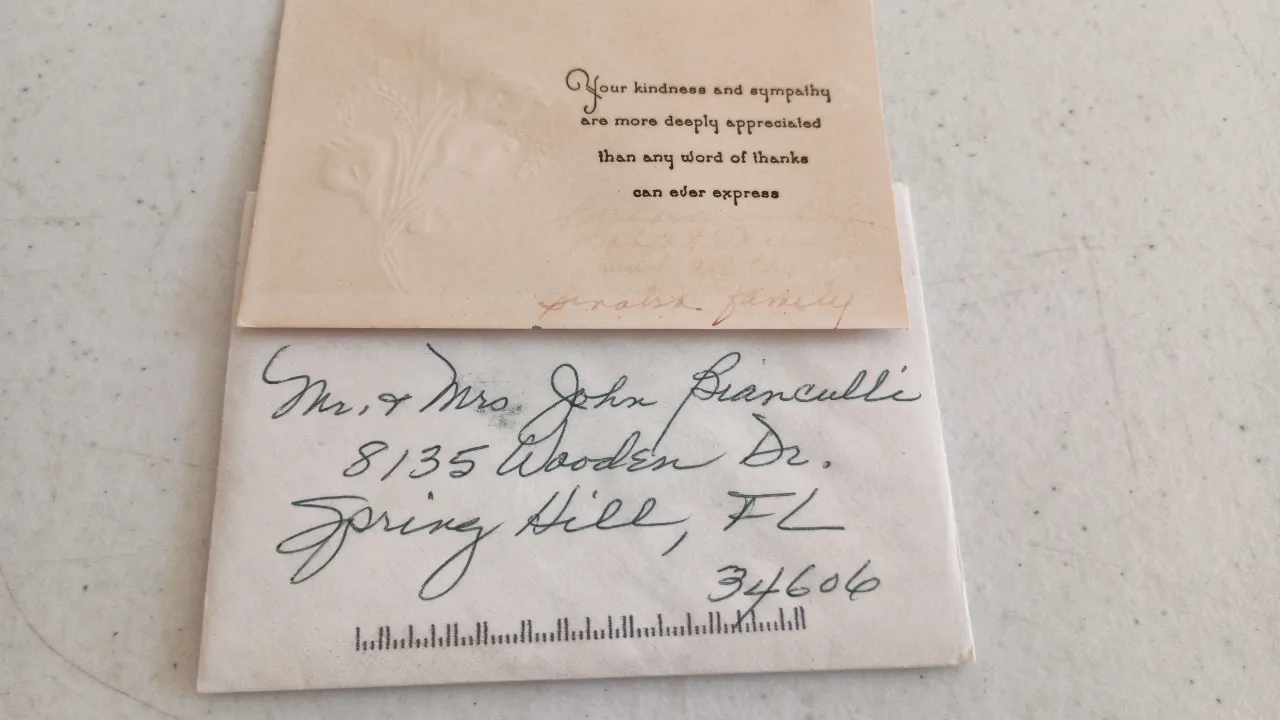 Your kindness and sympathy
are more deeply appreciated
than any word of thanks
can ever express
family
Mr. & Mrs. John Bianculli
8135 Wooden Dr.
Spring Hill, FL
34606